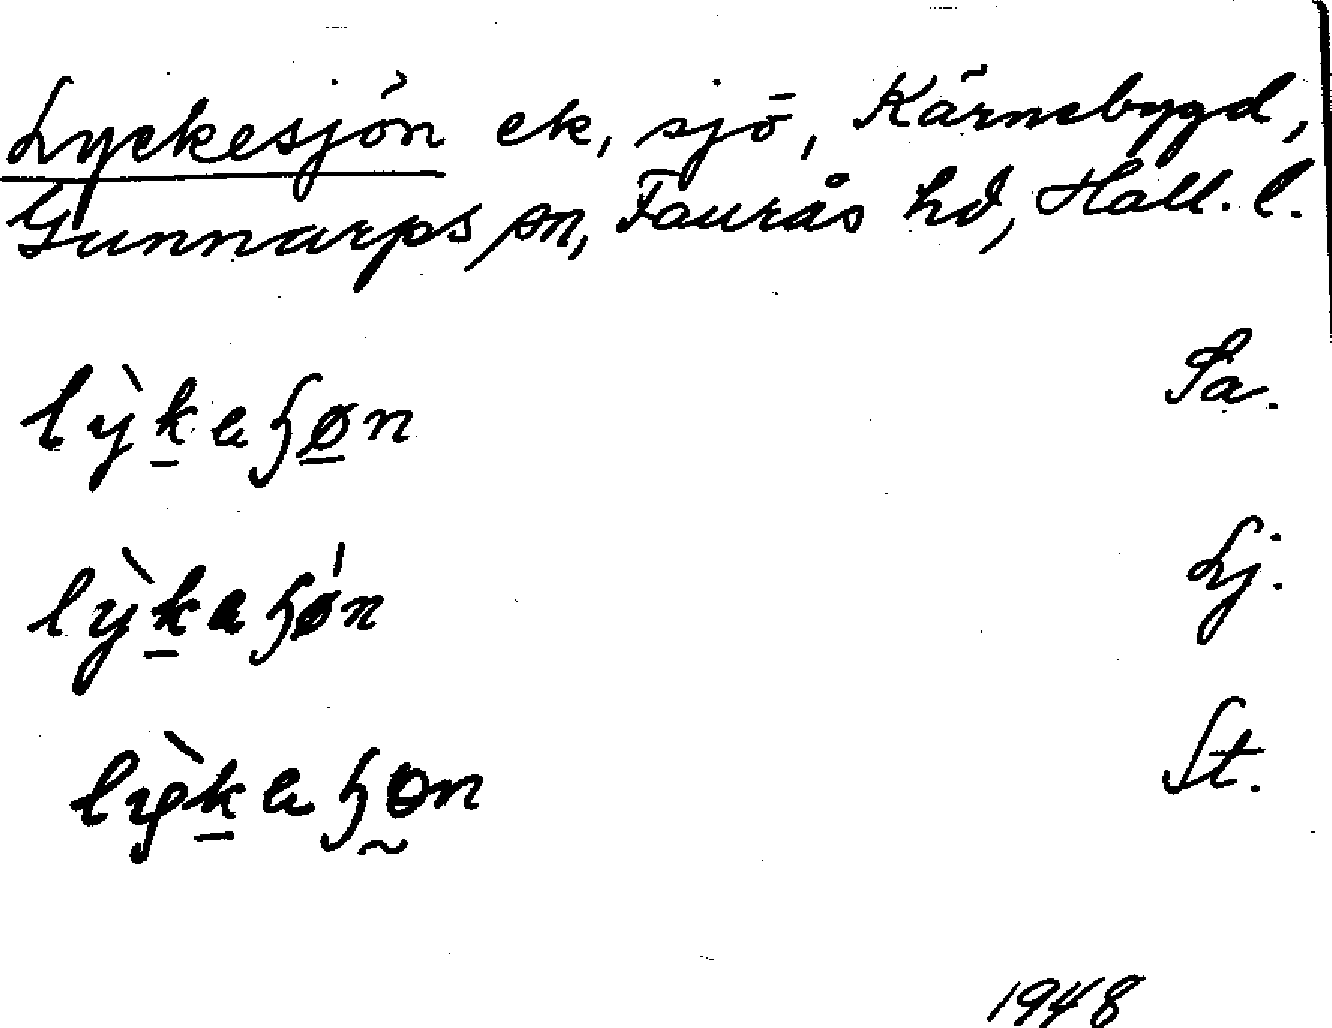 Lyckesjön ek, sjö, Kärnebygd,
Gunnarps sn, Faurås hd, Hall. l.
lỳkaɧøn Sa.
lỳkaɧǿn Lj.
lỳkaɧɵn St.
1948